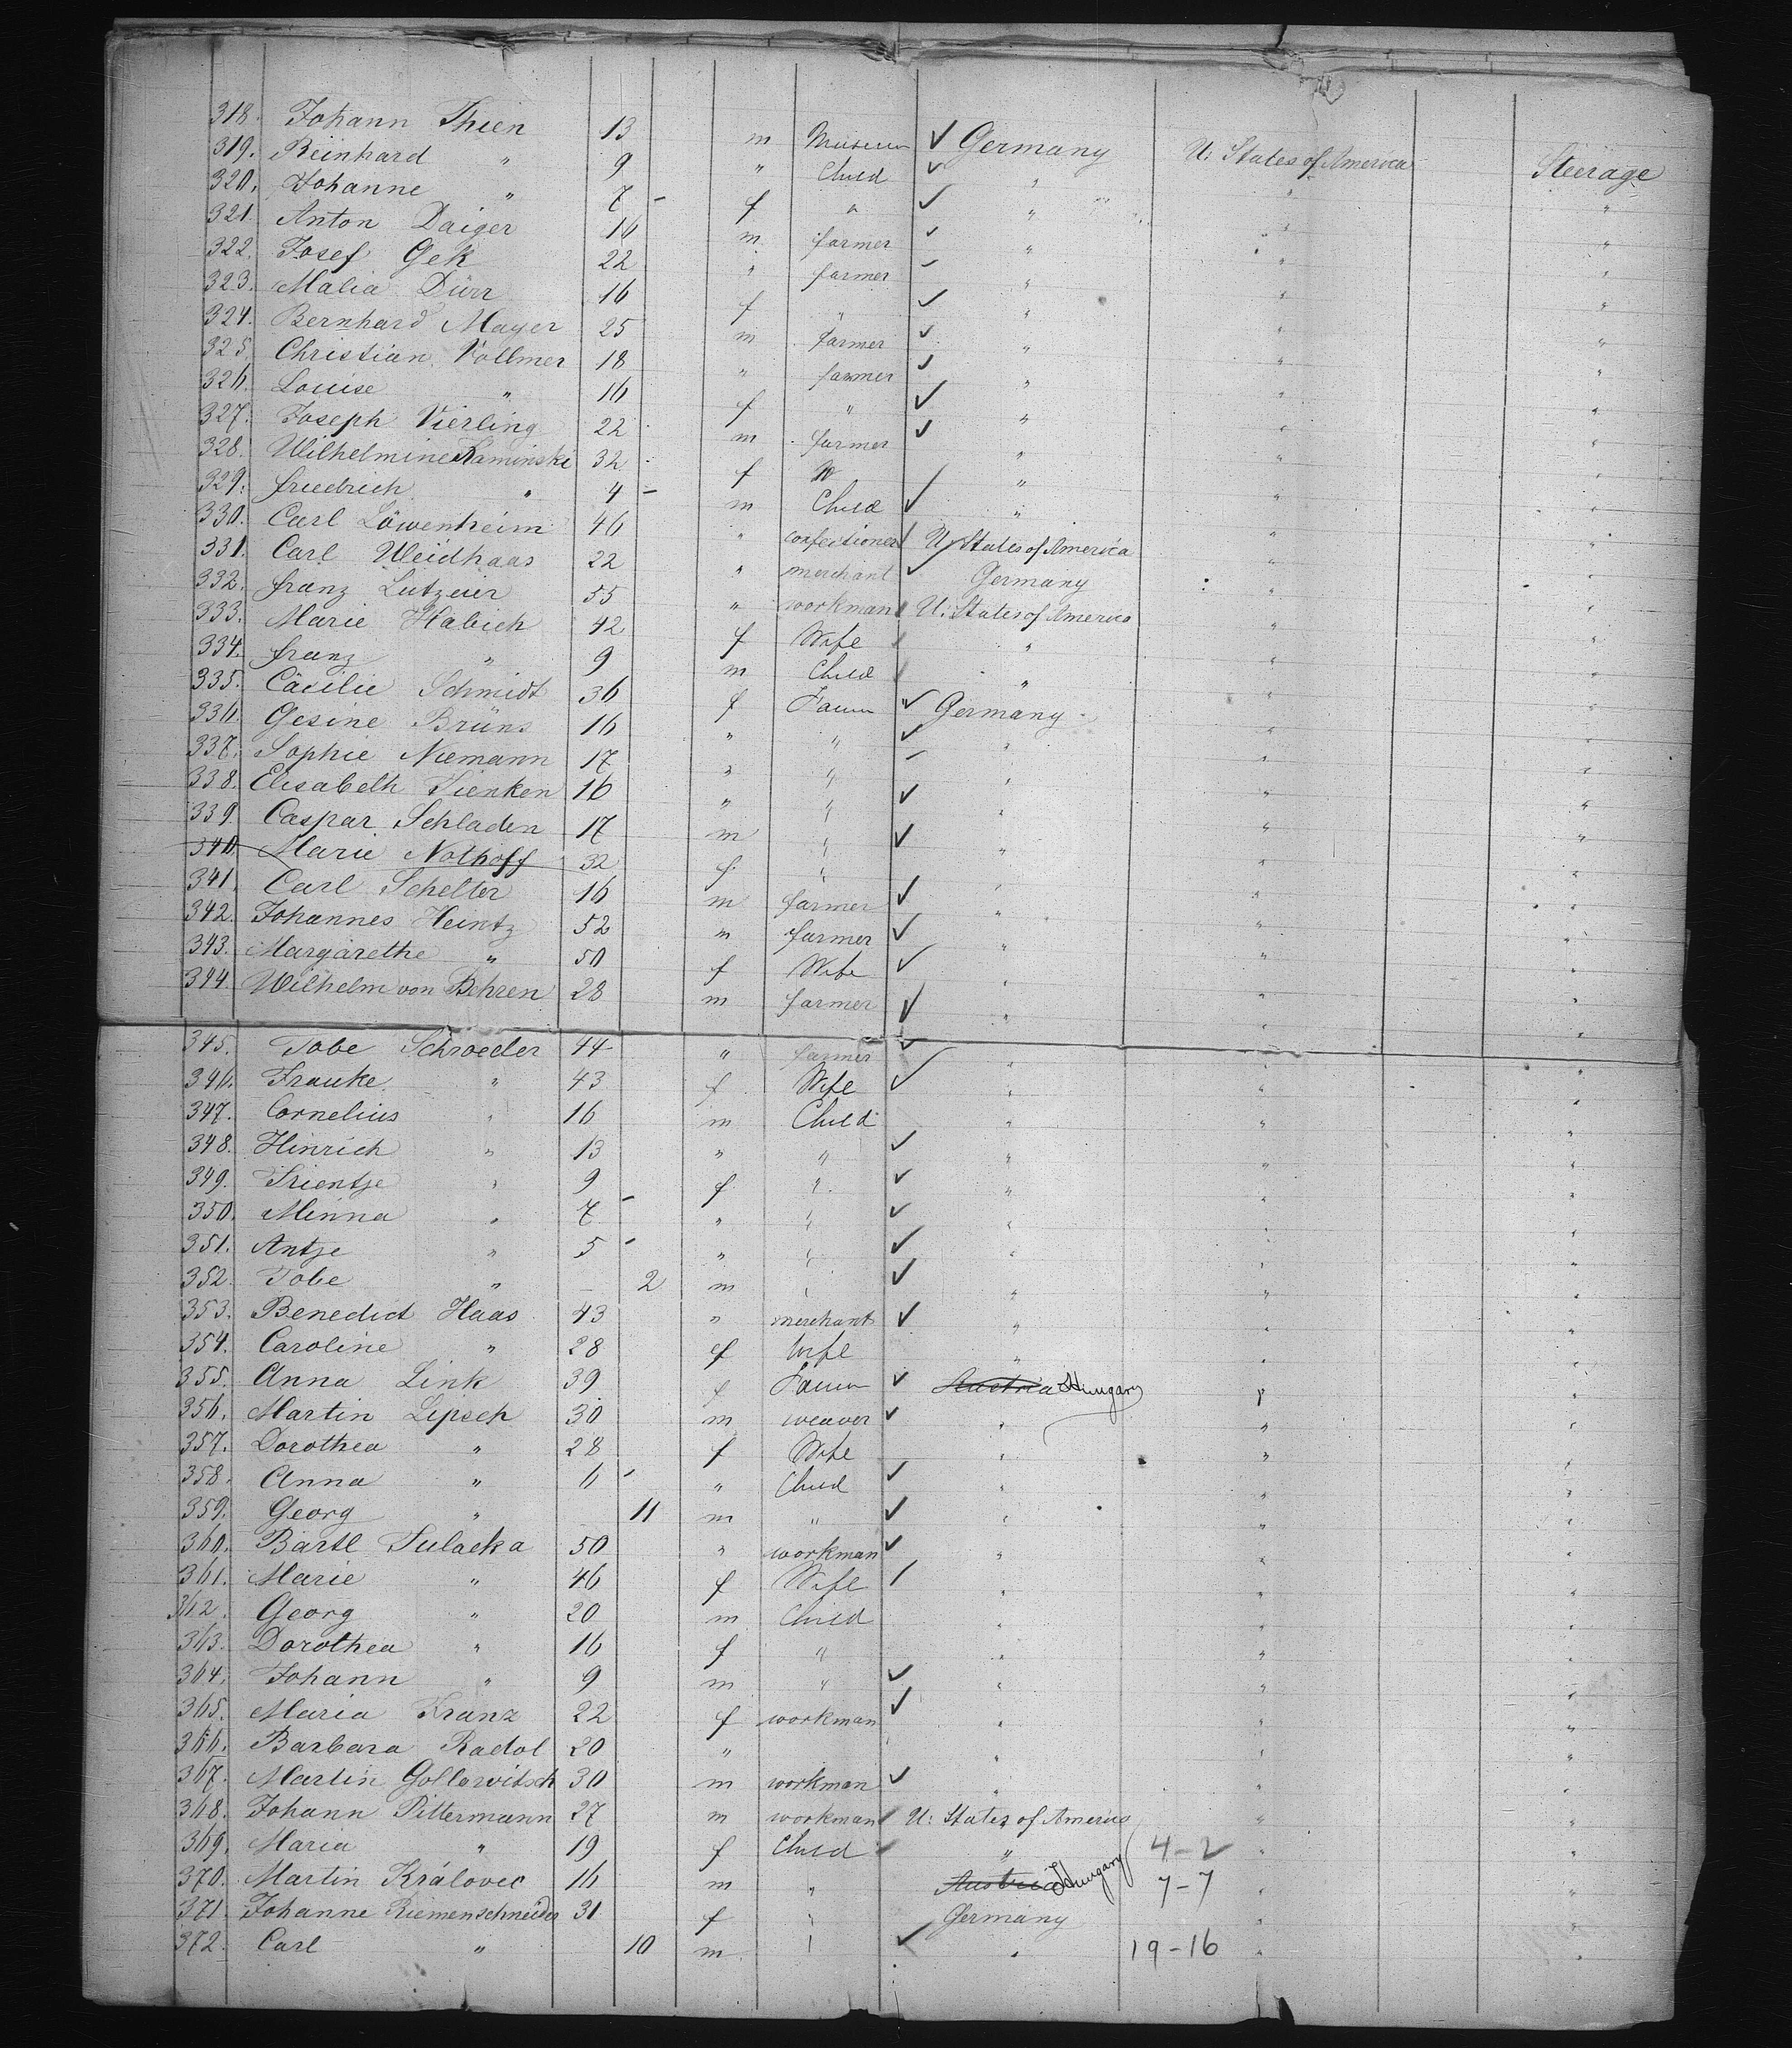 318. Johann Thien 13 m Musicus ✓ Germany U: States of America Steerage
319. Reinhard " 9 " Child ✓ " " "
320. Johanne " 7 - f " ✓ " " "
321. Anton Daiger 16 m farmer ✓ " " "
322. Josef Gek 22 " farmer ✓ " " "
323. Malia Dürr 16 f " ✓ " " "
324. Bernhard Mayer 25 m farmer ✓ " " "
325. Christian Vollmer 18 " farmer ✓ " " "
326. Louise " 16 f " ✓ " " "
327. Joseph Vierling 22 m farmer ✓ " " "
328. Wilhelmine Kaminski 32 f W " " "
329. friedrich " 4 - m Child ✓ " " "
330. Carl Löwenheim 46 " confectioner U: States of America " "
331. Carl Weidhaas 22 " merchant ✓ Germany " "
332. franz Lutzeier 55 " workman U: States of America " "
333. Marie Habich 42 f Wife " " "
334. franz " 9 m Child " " "
335. Cäcilie Schmidt 36 f ✓ Germany " "
336. Gesine Brüns 16 " " ✓ " " "
337. Sophie Niemann 17 " " " " "
338. Elisabeth Tienken 16 " " ✓ " " "
339. Caspar Schladen 17 m " ✓ " " "
340. Marie Nolhoff 32 f. " " " "
341. Carl Schelter 16 m farmer ✓ " " "
342. Johannes Heintz 52 m farmer ✓ " " "
343. Margarethe " 50 f Wife ✓ " " "
344. Wilhelm von Behren 28 m farmer ✓ " " "
345. Tobe Schroeder 44 " farmer ✓ " " "
346. Frauke " 43 f Wife ✓ " " "
347. Cornelius " 16 m Child " " "
348. Hinrich " 13 " " ✓ " " "
349. Trientje " 9 f " ✓ " " "
350. Minna " 7 - " " ✓ " " "
351. Antje " 5 - " " ✓ " " "
352. Tobe " 2 m " ✓ " " "
353. Benedict Haas 43 " merchant ✓ " " "
354. Caroline " 28 f Wife " " "
355. Anna Link 39 f ✓ Austria Hungary " "
356. Martin Lipsch 30 m weaver ✓ " " "
357. Dorothea " 28 f Wife " " "
358. Anna " 6 - " Child ✓ " " "
359. Georg " 11 m " ✓ " " "
360. Bartl Sulacka 50 " workman ✓ " " "
361. Marie " 46 f Wife " " "
362. Georg " 20 m Child " " "
363. Dorothea " 16 f " " " "
364. Johann " 9 m " ✓ " " "
365. Maria Kranz 22 f workman ✓ " " "
366. Barbara Radol 20 " " " "
367. Martin Gollowitsch 30 m workman ✓ " " "
368. Johann Pittermann 27 m workman U: States of America " "
369. Maria " 19 f Child " 4-2 " "
370. Martin Královec 16 m " Austria Hungary 7-7 " "
371. Johanne Riemenschneider 31 f " Germany " "
372. Carl " 10 m " ✓ " 19-16 " "